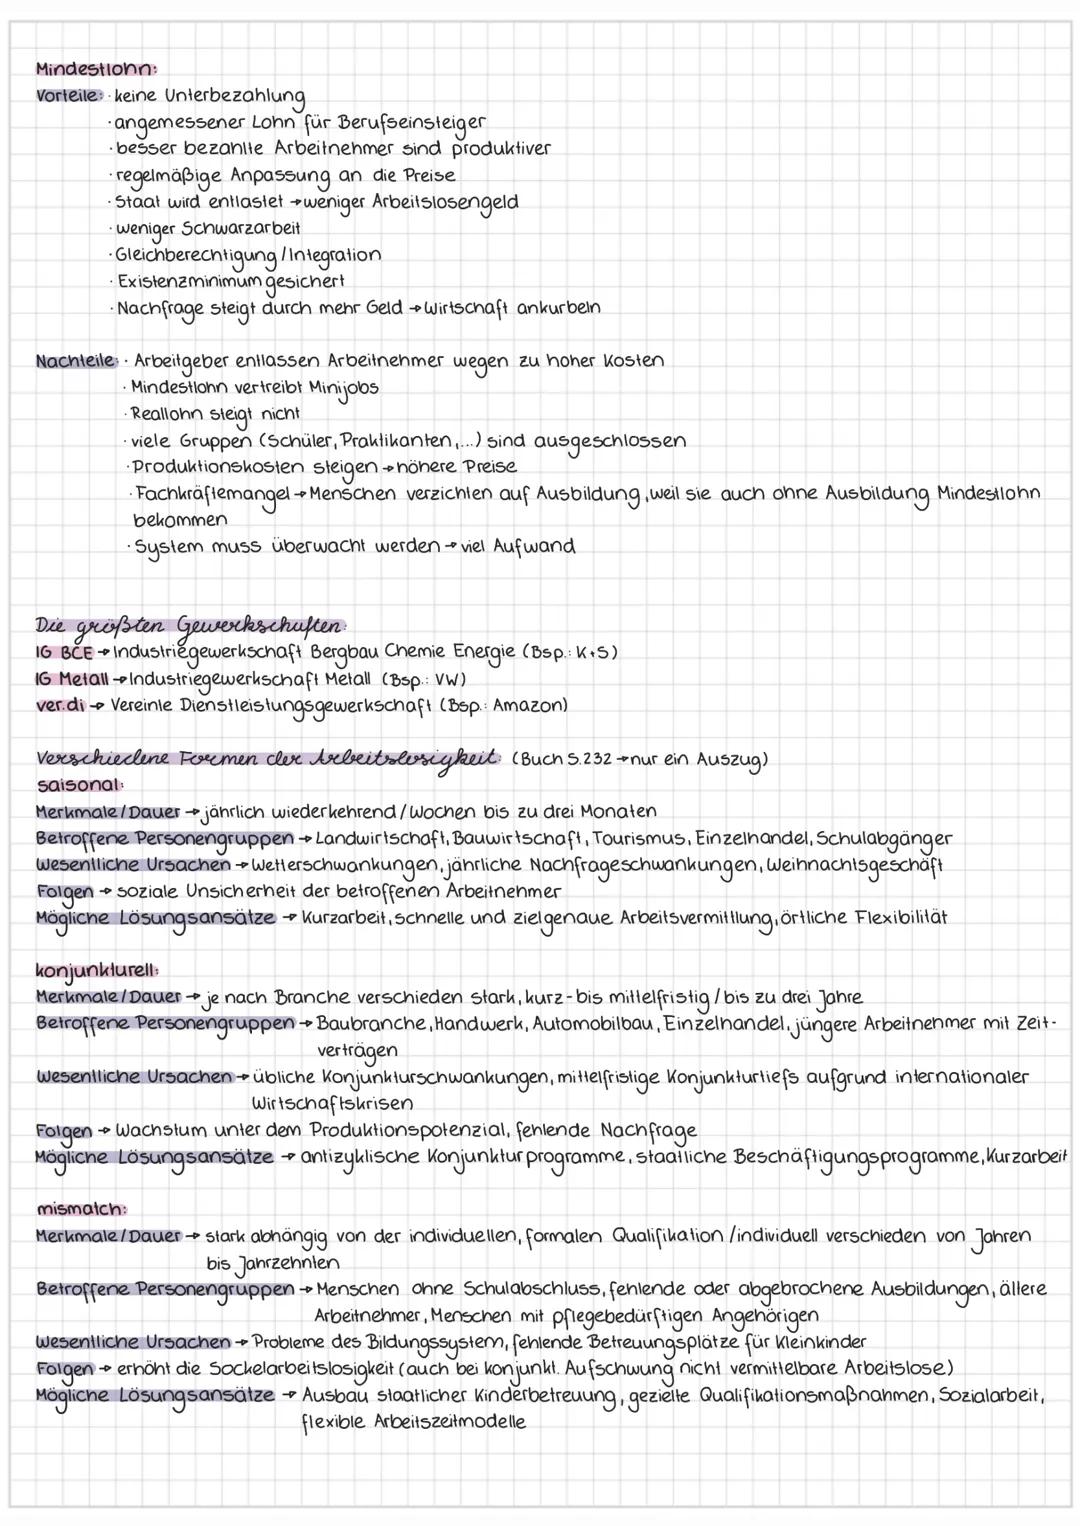 Mindestlohn:
Vorteile: · keine Unterbezahlung
· angemessener Lohn für Berufseinsteiger
· besser bezahlte Arbeitnehmer sind produktiver
· regelmäßige Anpassung an die Preise
· Staat wird entlastet → weniger Arbeitslosengeld
· weniger Schwarzarbeit
· Gleichberechtigung / Integration
· Existenzminimum gesichert
· Nachfrage steigt durch mehr Geld → Wirtschaft ankurbeln
Nachteile: · Arbeitgeber entlassen Arbeitnehmer wegen zu hoher Kosten
· Mindestlohn vertreibt Minijobs
· Reallohn steigt nicht
· viele Gruppen (Schüler, Praktikanten,...) sind ausgeschlossen
· Produktionskosten steigen → höhere Preise
· Fachkräftemangel → Menschen verzichten auf Ausbildung, weil sie auch ohne Ausbildung Mindestlohn
bekommen
· System muss überwacht werden → viel Aufwand
Die größten Gewerkschaften:
IG BCE → Industriegewerkschaft Bergbau Chemie Energie (Bsp.: K+S)
IG Metall → Industriegewerkschaft Metall (Bsp.: VW)
ver.di → Vereinte Dienstleistungsgewerkschaft (Bsp.: Amazon)
Verschiedene Formen der Arbeitslosigkeit: (Buch S.232 → nur ein Auszug)
saisonal:
Merkmale/Dauer → jährlich wiederkehrend / Wochen bis zu drei Monaten
Betroffene Personengruppen → Landwirtschaft, Bauwirtschaft, Tourismus, Einzelhandel, Schulabgänger
Wesentliche Ursachen → Wetterschwankungen, jährliche Nachfrageschwankungen, Weihnachtsgeschäft
Folgen → soziale Unsicherheit der betroffenen Arbeitnehmer
Mögliche Lösungsansätze → Kurzarbeit, schnelle und zielgenaue Arbeitsvermittlung, örtliche Flexibilität
konjunkturell:
Merkmale/Dauer → je nach Branche verschieden stark, kurz- bis mittelfristig / bis zu drei Jahre
Betroffene Personengruppen → Baubranche, Handwerk, Automobilbau, Einzelhandel, jüngere Arbeitnehmer mit Zeit-
verträgen
Wesentliche Ursachen → übliche Konjunkturschwankungen, mittelfristige Konjunkturtiefs aufgrund internationaler
Wirtschaftskrisen
Folgen → Wachstum unter dem Produktionspotenzial, fehlende Nachfrage
Mögliche Lösungsansätze → antizyklische Konjunkturprogramme, staatliche Beschäftigungsprogramme, Kurzarbeit
mismatch:
Merkmale/Dauer → stark abhängig von der individuellen, formalen Qualifikation / individuell verschieden von Jahren
bis Jahrzehnten
Betroffene Personengruppen → Menschen ohne Schulabschluss, fehlende oder abgebrochene Ausbildungen, ältere
Arbeitnehmer, Menschen mit pflegebedürftigen Angehörigen
Wesentliche Ursachen → Probleme des Bildungssystem, fehlende Betreuungsplätze für Kleinkinder
Folgen → erhöht die Sockelarbeitslosigkeit (auch bei konjunkt. Aufschwung nicht vermittelbare Arbeitslose)
Mögliche Lösungsansätze → Ausbau staatlicher Kinderbetreuung, gezielte Qualifikationsmaßnahmen, Sozialarbeit,
flexible Arbeitszeitmodelle